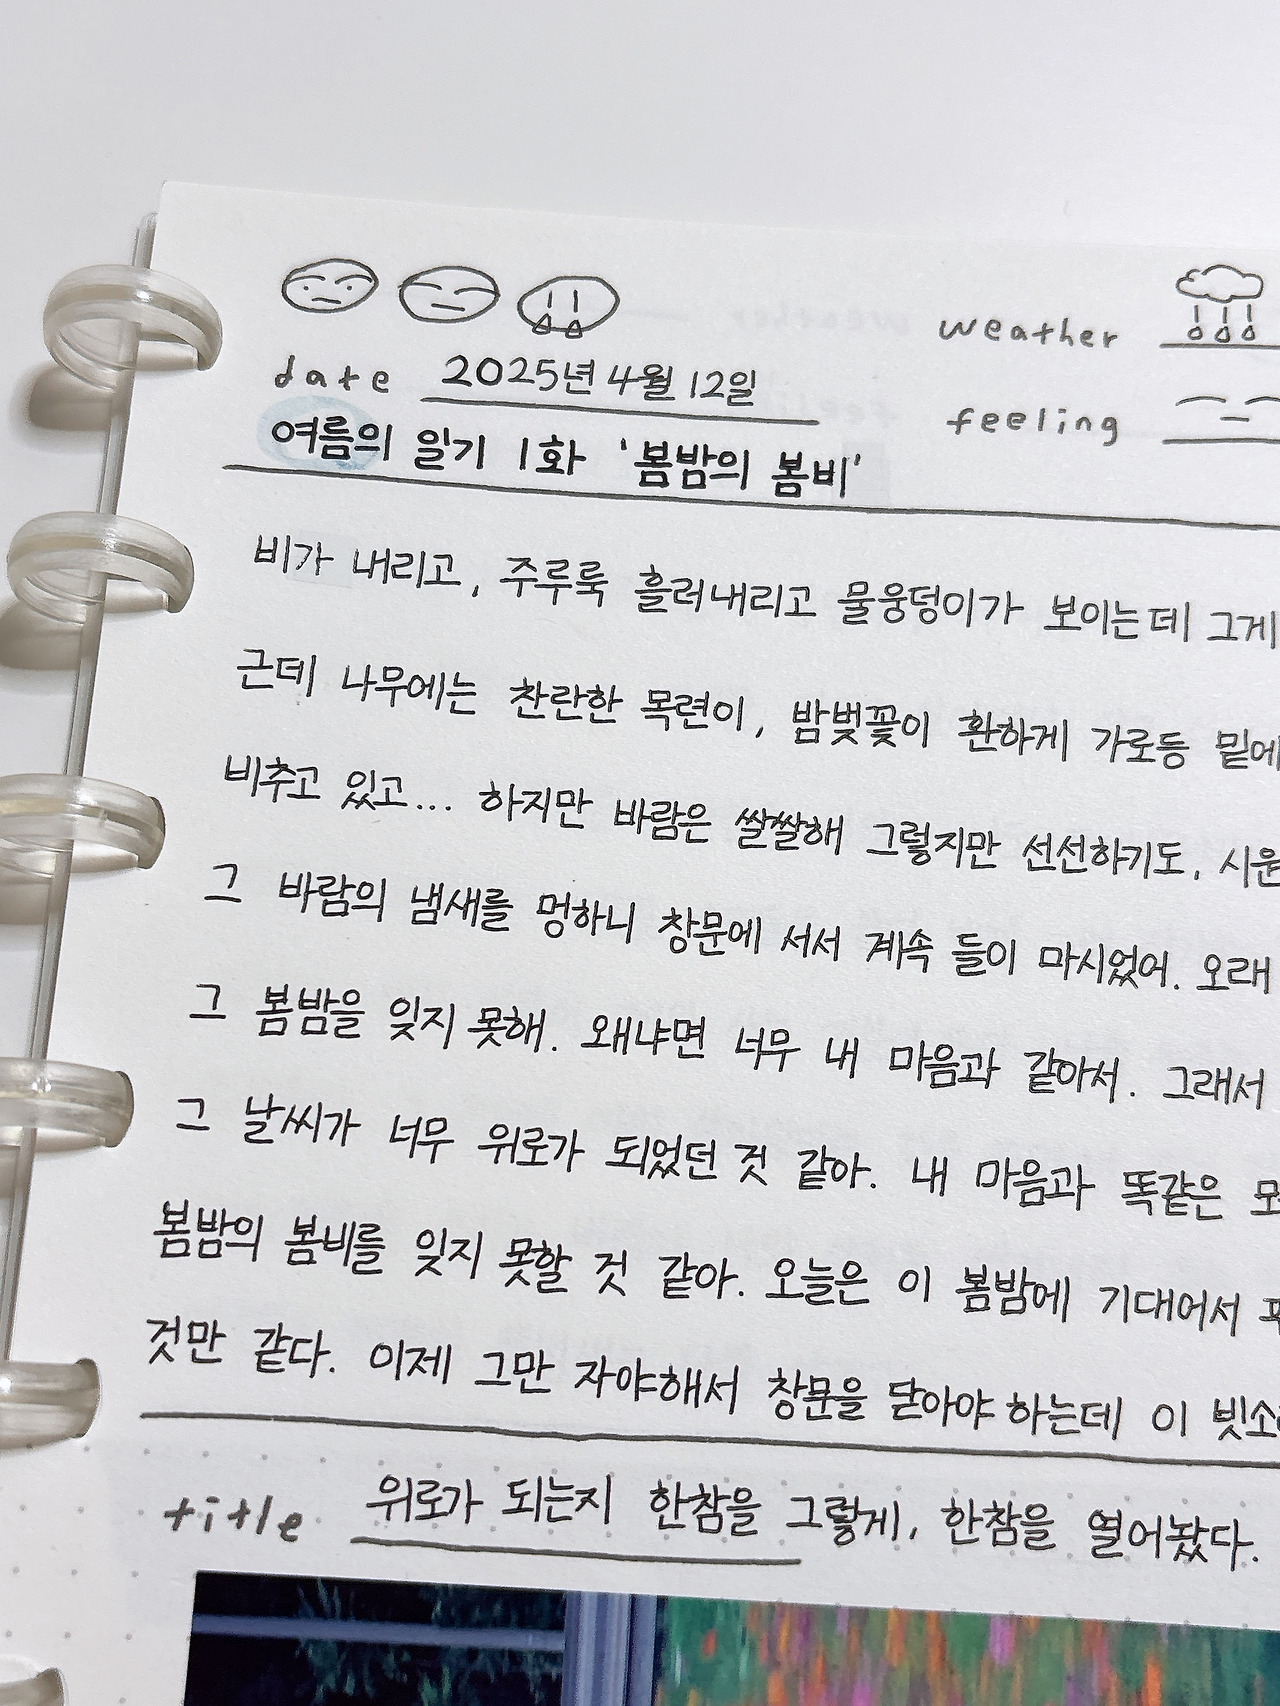 weather
date 2025년 4월 12일
feeling
여름의 일기 1화 '봄밤의 봄비'
비가 내리고, 주루룩 흘러내리고 물웅덩이가 보이는데 그게
근데 나무에는 찬란한 목련이, 밤벚꽃이 환하게 가로등 밑에
비추고 있고... 하지만 바람은 쌀쌀해 그렇지만 선선하기도, 시원
그 바람의 냄새를 멍하니 창문에 서서 계속 들이 마시었어. 오래
그 봄밤을 잊지 못해. 왜냐면 너무 내 마음과 같아서. 그래서
그 날씨가 너무 위로가 되었던 것 같아. 내 마음과 똑같은
봄밤의 봄비를 잊지 못할 것 같아. 오늘은 이 봄밤에 기대어서
것만 같다. 이제 그만 자야해서 창문을 닫아야 하는데 이
title 위로가 되는지 한참을 그렇게, 한참을 열어놨다.